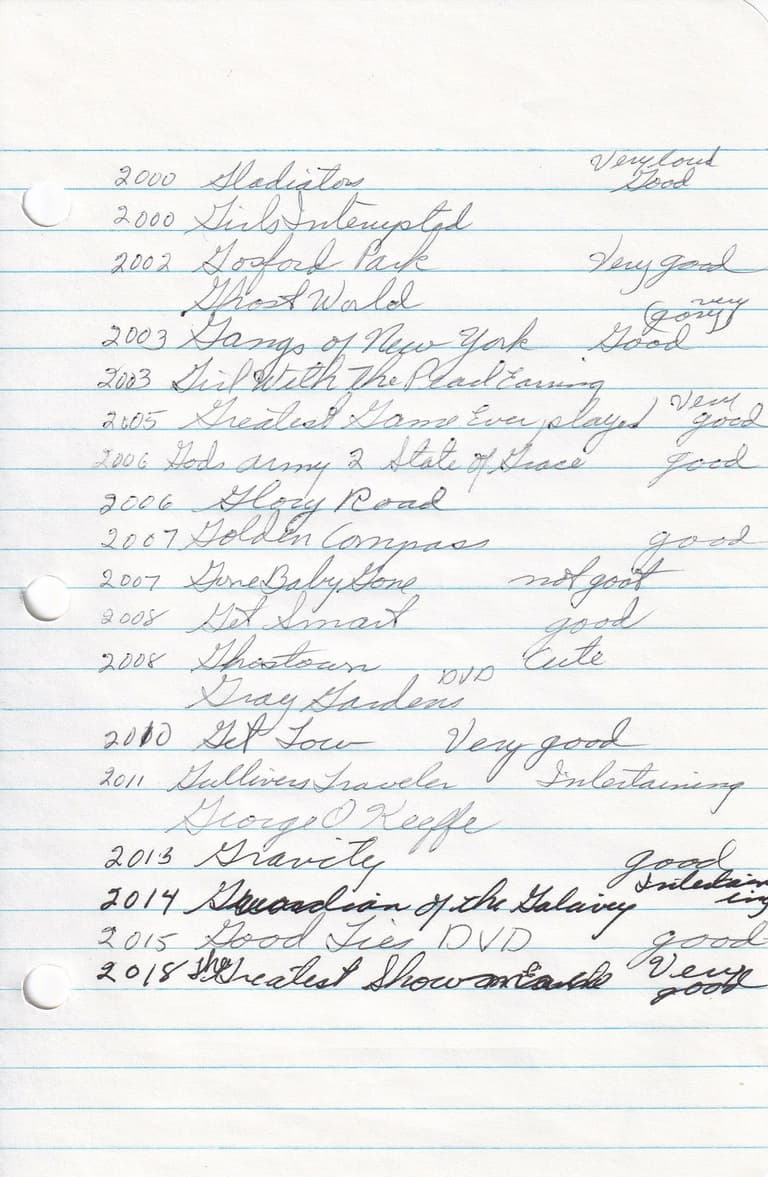 2000 Gladiators Very loud Good
2000 Girls Interrupted
2002 Gosford Park Very good
Ghost World
2003 Gangs of New York Good (very gory)
2003 Girl With The Pearl Earring
2005 Greatest Game Ever played Very good
2006 Gods army 2 State of Grace good
2006 Glory Road
2007 Golden Compass good
2007 Gone Baby Gone not good
2008 Get Smart good
2008 Ghostown Cute
Gray Gardens DVD
2010 Get Low Very good
2011 Gullivers Traveler Intertaining
George O Keeffe
2013 Gravity good
2014 Guardian of the Galaxey Intertaining
2015 Good Lies DVD good
2018 the Greatest Show on Earth Very good